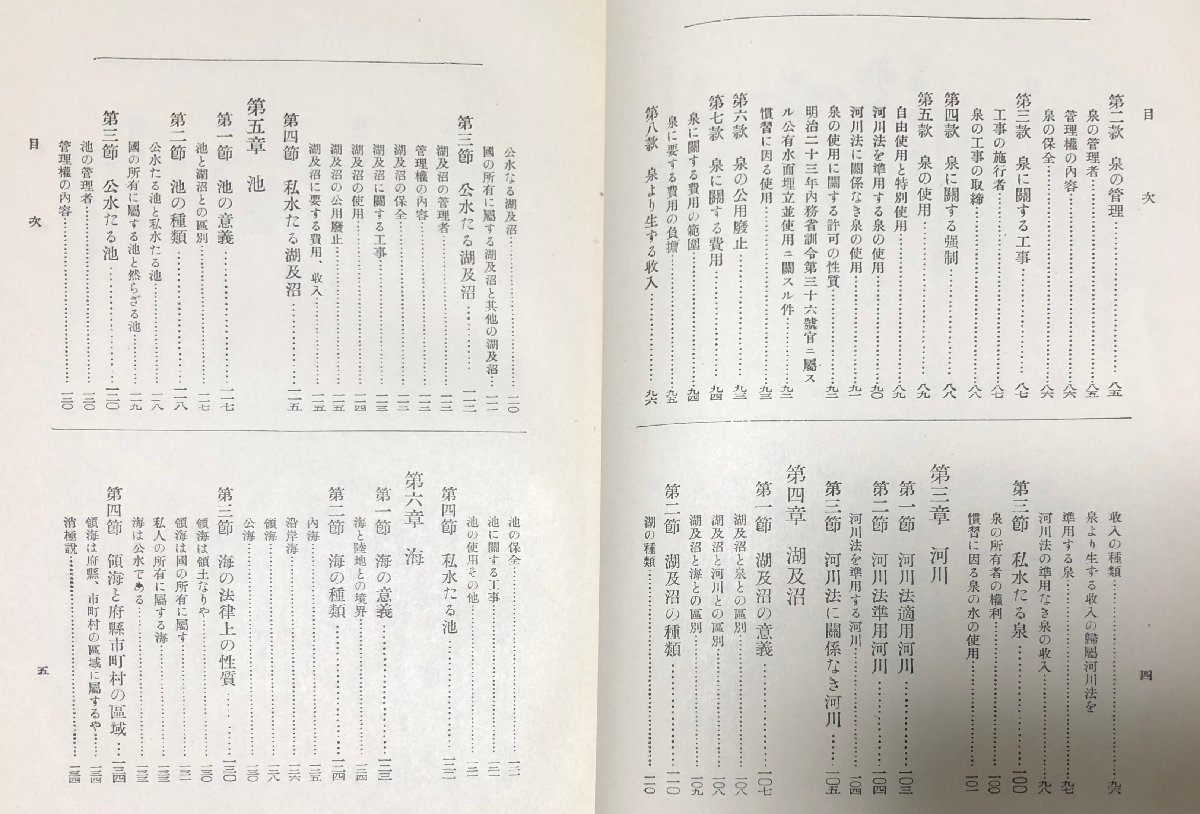 目次
第二款 泉の管理……八五
泉の管理者……八五
管理權の內容……八六
泉の保全……八六
第三款 泉に關する工事……八七
工事の施行者……八七
泉の工事の取締……八八
第四款 泉に關する强制……八八
第五款 泉の使用……八九
自由使用と特別使用……八九
河川法を準用する泉の使用……九〇
河川法に關係なき泉の使用……九一
泉の使用に關する許可の性質……九二
明治二十三年內務省訓令第三十六號官ニ屬ス
ル公有水面埋立並使用ニ關スル件……九三
慣習に因る使用……九三
第六款 泉の公用廢止……九三
第七款 泉に關する費用……九四
泉に關する費用の範圍……九四
泉に要する費用の負擔……九五
第八款 泉より生する收入……九六
收入の種類……九六
泉より生する收入の歸屬河川法を
準用する泉……九七
河川法の準用なき泉の收入……九八
第三節 私水たる泉……一〇〇
泉の所有者の權利……一〇〇
慣習に因る泉の水の使用……一〇一
第三章 河川
第一節 河川法適用河川……一〇三
第二節 河川法準用河川……一〇四
河川法を準用する河川……一〇四
第三節 河川法に關係なき河川……一〇五
第四章 湖及沼
第一節 湖及沼の意義……一〇七
湖及沼と泉との區別……一〇八
湖及沼と河川との區別……一〇八
湖及沼と海との區別……一〇九
第二節 湖及沼の種類……一一〇
湖の種類……一一〇
四
公水なる湖及沼……一一〇
國の所有に屬する湖及沼と其他の湖及沼……一一一
第三節 公水たる湖及沼……一一二
湖及沼の管理者……一一二
管理權の內容……一一三
湖及沼の保全……一一三
湖及沼に關する工事……一一三
湖及沼の使用……一一四
湖及沼の公用廢止……一一五
湖及沼に要する費用、收入……一一五
第四節 私水たる湖及沼……一一五
第五章 池
第一節 池の意義……一一七
池と湖沼との區別……一一七
第二節 池の種類……一一八
公水たる池と私水たる池……一一八
國の所有に屬する池と然らざる池……一一九
第三節 公水たる池……一二〇
池の管理者……一二〇
管理權の內容……一二〇
目次
池の保全……一二一
池に關する工事……一二一
池の使用その他……一二一
第四節 私水たる池……一二二
第六章 海
第一節 海の意義……一二三
海と陸地との境界……一二四
第二節 海の種類……一二四
內海……一二五
沿岸海……一二六
領海……一二八
公海……一三〇
第三節 海の法律上の性質……一三〇
領海は領土なりや……一三〇
領海は國の所有に屬す……一三一
私人の所有に屬する海……一三三
海は公水である……一三三
第四節 領海と府縣市町村の區域……一三四
領海は府縣、市町村の區域に屬するや……一三四
消極說……一三四
五